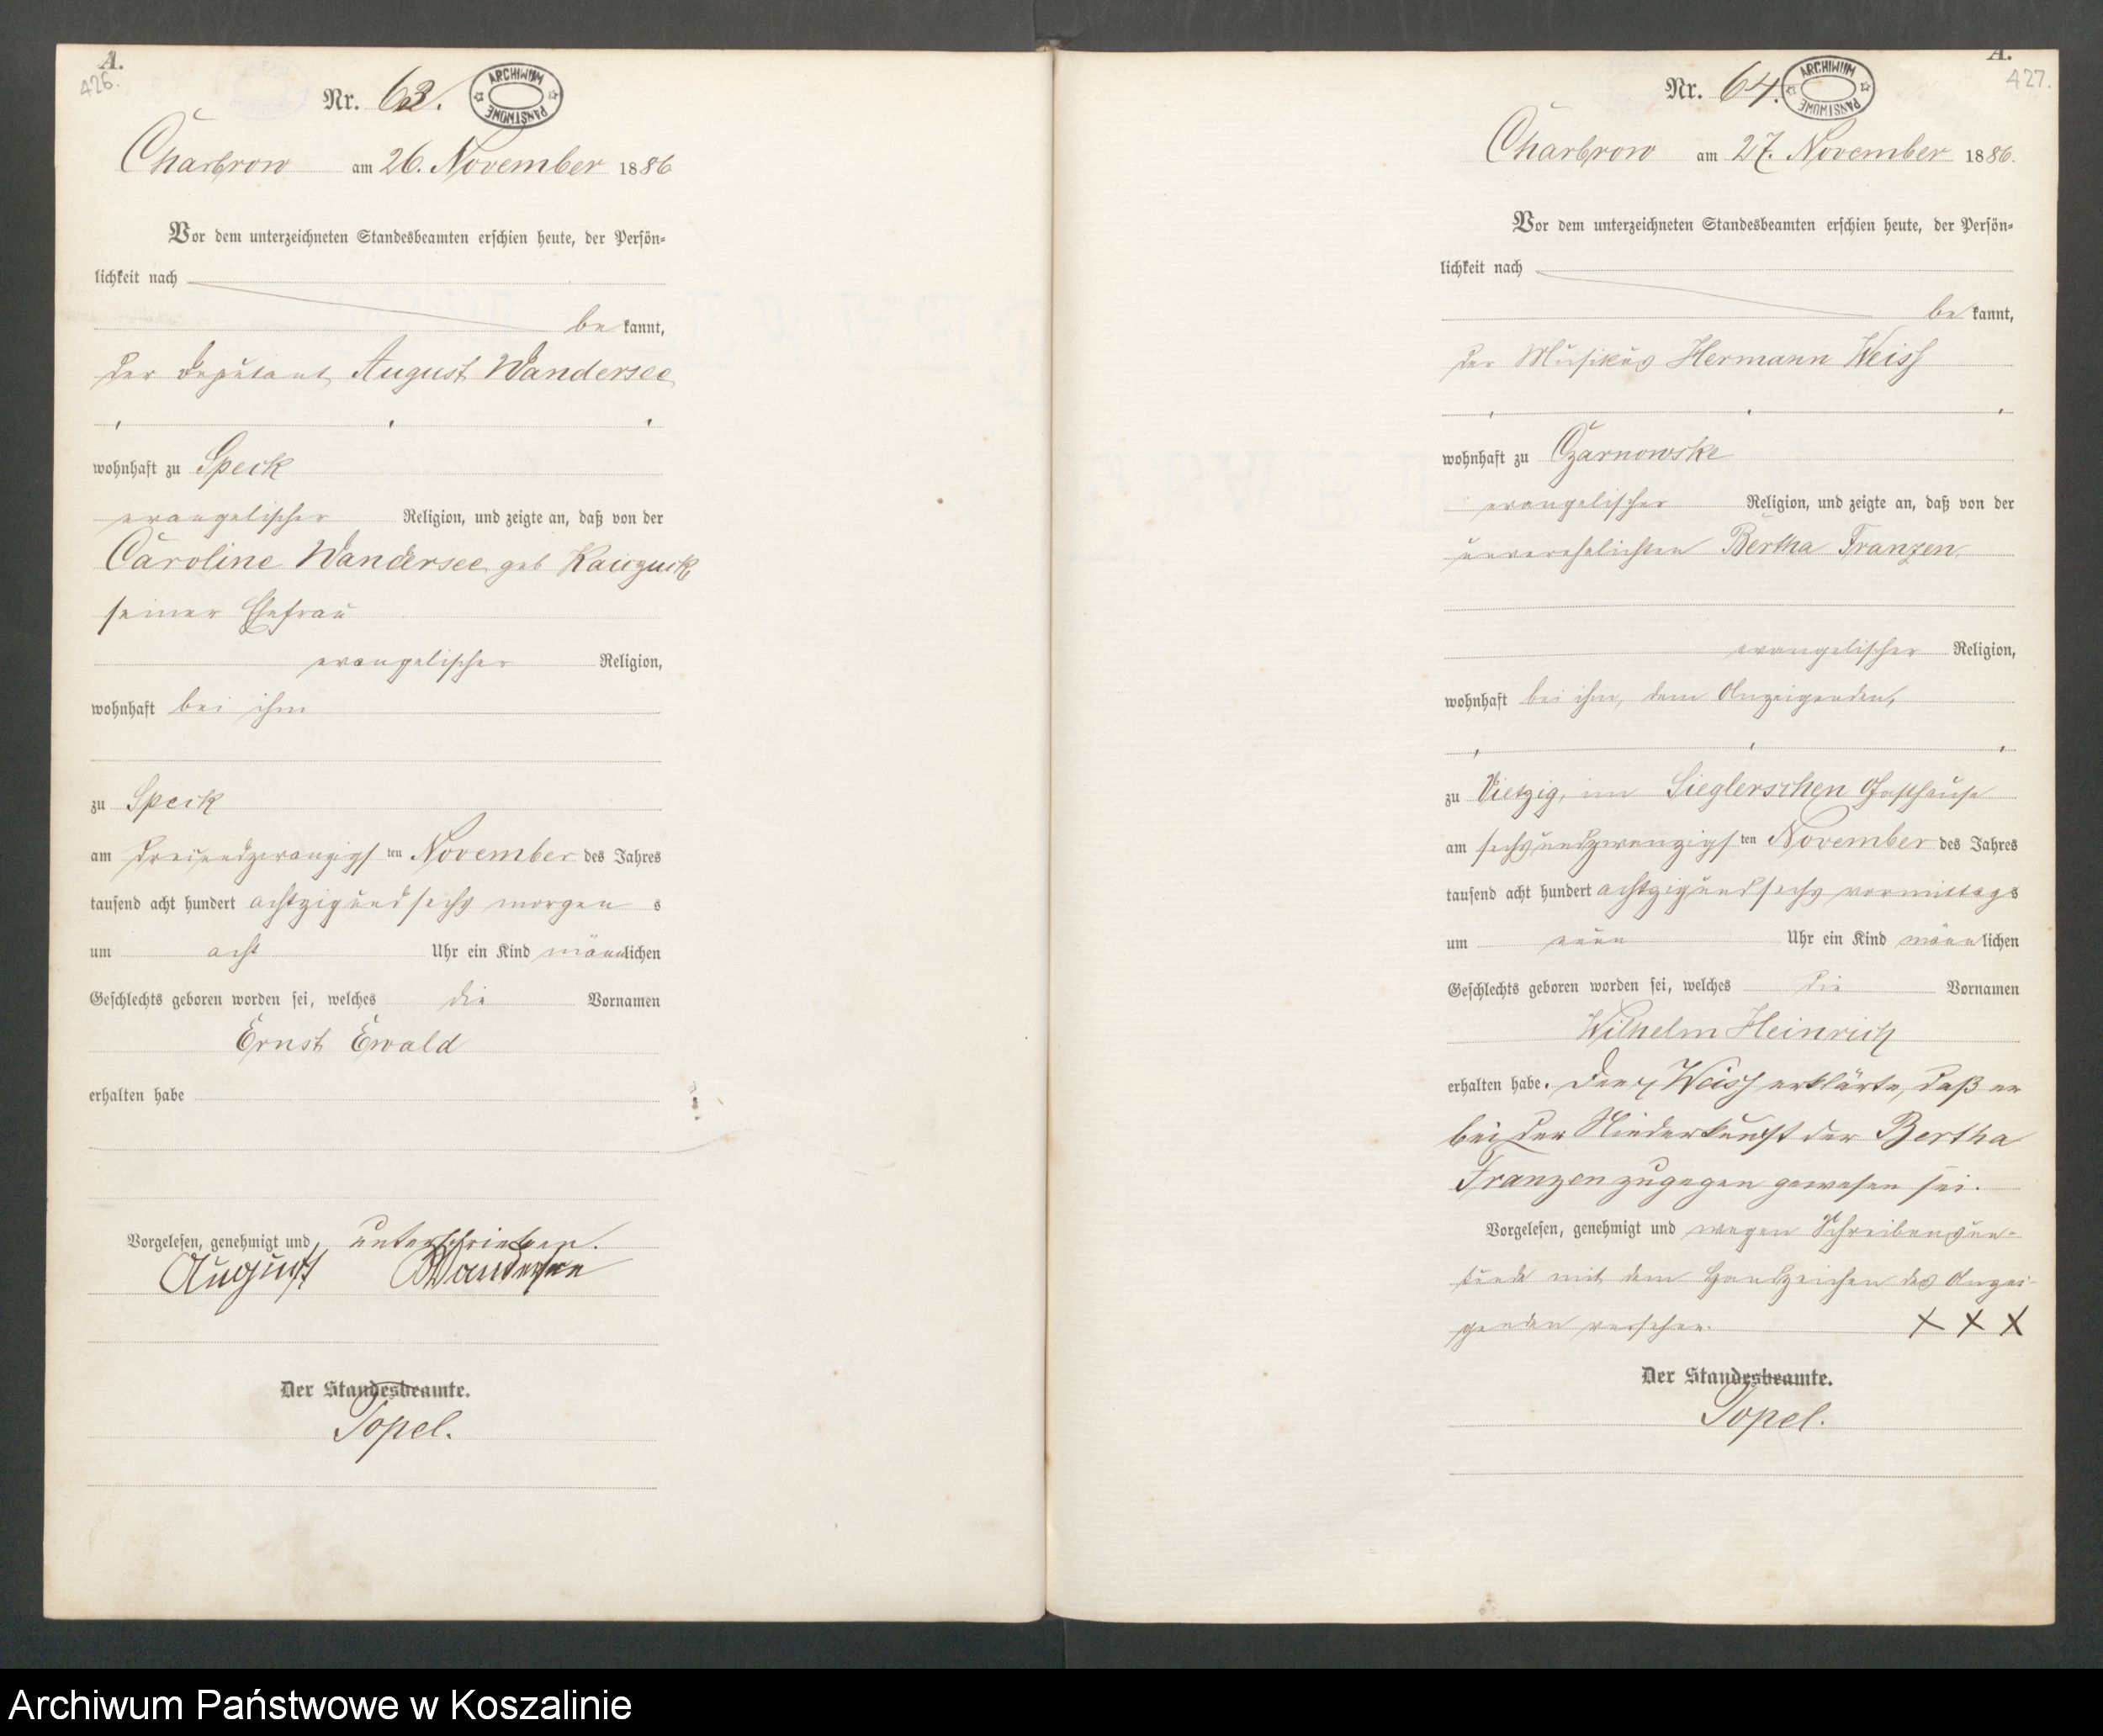 A.
426.
Nr. 63.
ARCHIWUM PAŃSTWOWE
Charbrow am 26. November 1886
Vor dem unterzeichneten Standesbeamten erschien heute, der Persön-
lichkeit nach
be kannt,
der Deputant August Wandersee
wohnhaft zu Speck
evangelischer Religion, und zeigte an, daß von der
Caroline Wandersee geb
seiner Ehefrau
evangelischer Religion,
wohnhaft bei ihm
zu Speck
am dreiundzwanzigs ten November des Jahres
tausend acht hundert achtzigundsechs morgen s
um acht Uhr ein Kind männlichen
Geschlechts geboren worden sei, welches die Vornamen
Ernst Ewald
erhalten habe
Vorgelesen, genehmigt und unterschrieben.
August Wandersee
Der Standesbeamte.
Topel.
A.
427.
Nr. 64.
ARCHIWUM PAŃSTWOWE
Charbrow am 27. November 1886.
Vor dem unterzeichneten Standesbeamten erschien heute, der Persön-
lichkeit nach
be kannt,
der Musikus Hermann Weiss
wohnhaft zu Czarnowske
evangelischer Religion, und zeigte an, daß von der
unverehelichten Bertha Franzen,
evangelischer Religion,
wohnhaft bei ihm, dem Anzeigenden,
zu Vietzig, im Sieglerschen Gasthause
am sechsundzwanzigs ten November des Jahres
tausend acht hundert achtzigundsechs vormittags
um neun Uhr ein Kind männlichen
Geschlechts geboren worden sei, welches die Vornamen
Wilhelm Heinrich
erhalten habe. Weiss erklärte, daß er
bei der Niederkunft der Bertha
Franzen zugegen gewesen sei.
Vorgelesen, genehmigt und wegen Schreibensun-
kunde mit dem Handzeichen des Anzei-
genden versehen. X X X
Der Standesbeamte.
Topel.
Archiwum Państwowe w Koszalinie